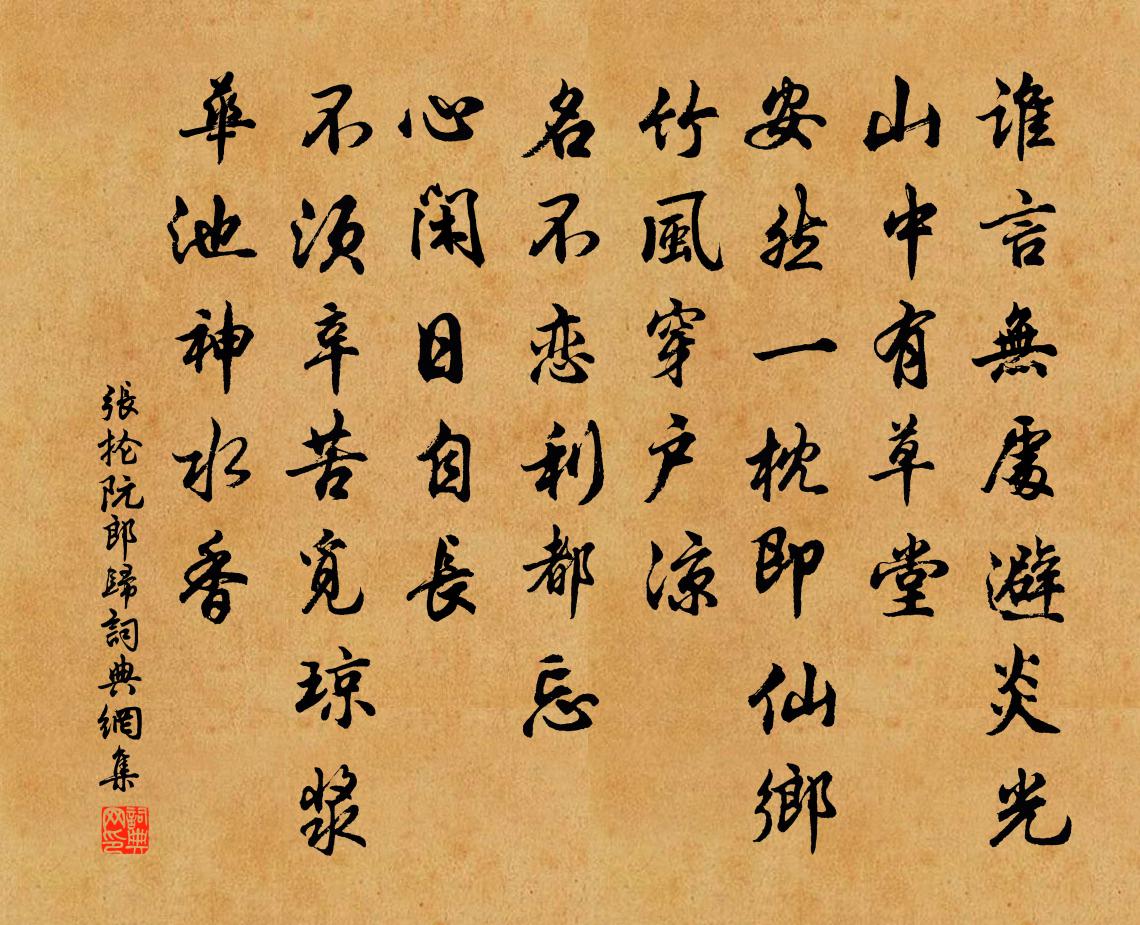 谁言無處避炎光
山中有草堂
安然一枕即仙鄉
竹風穿户涼
名不恋利都忘
心閑日自長
不須辛苦覓琼漿
華池神水香
張抡阮郎歸詞典網集
詞典网印